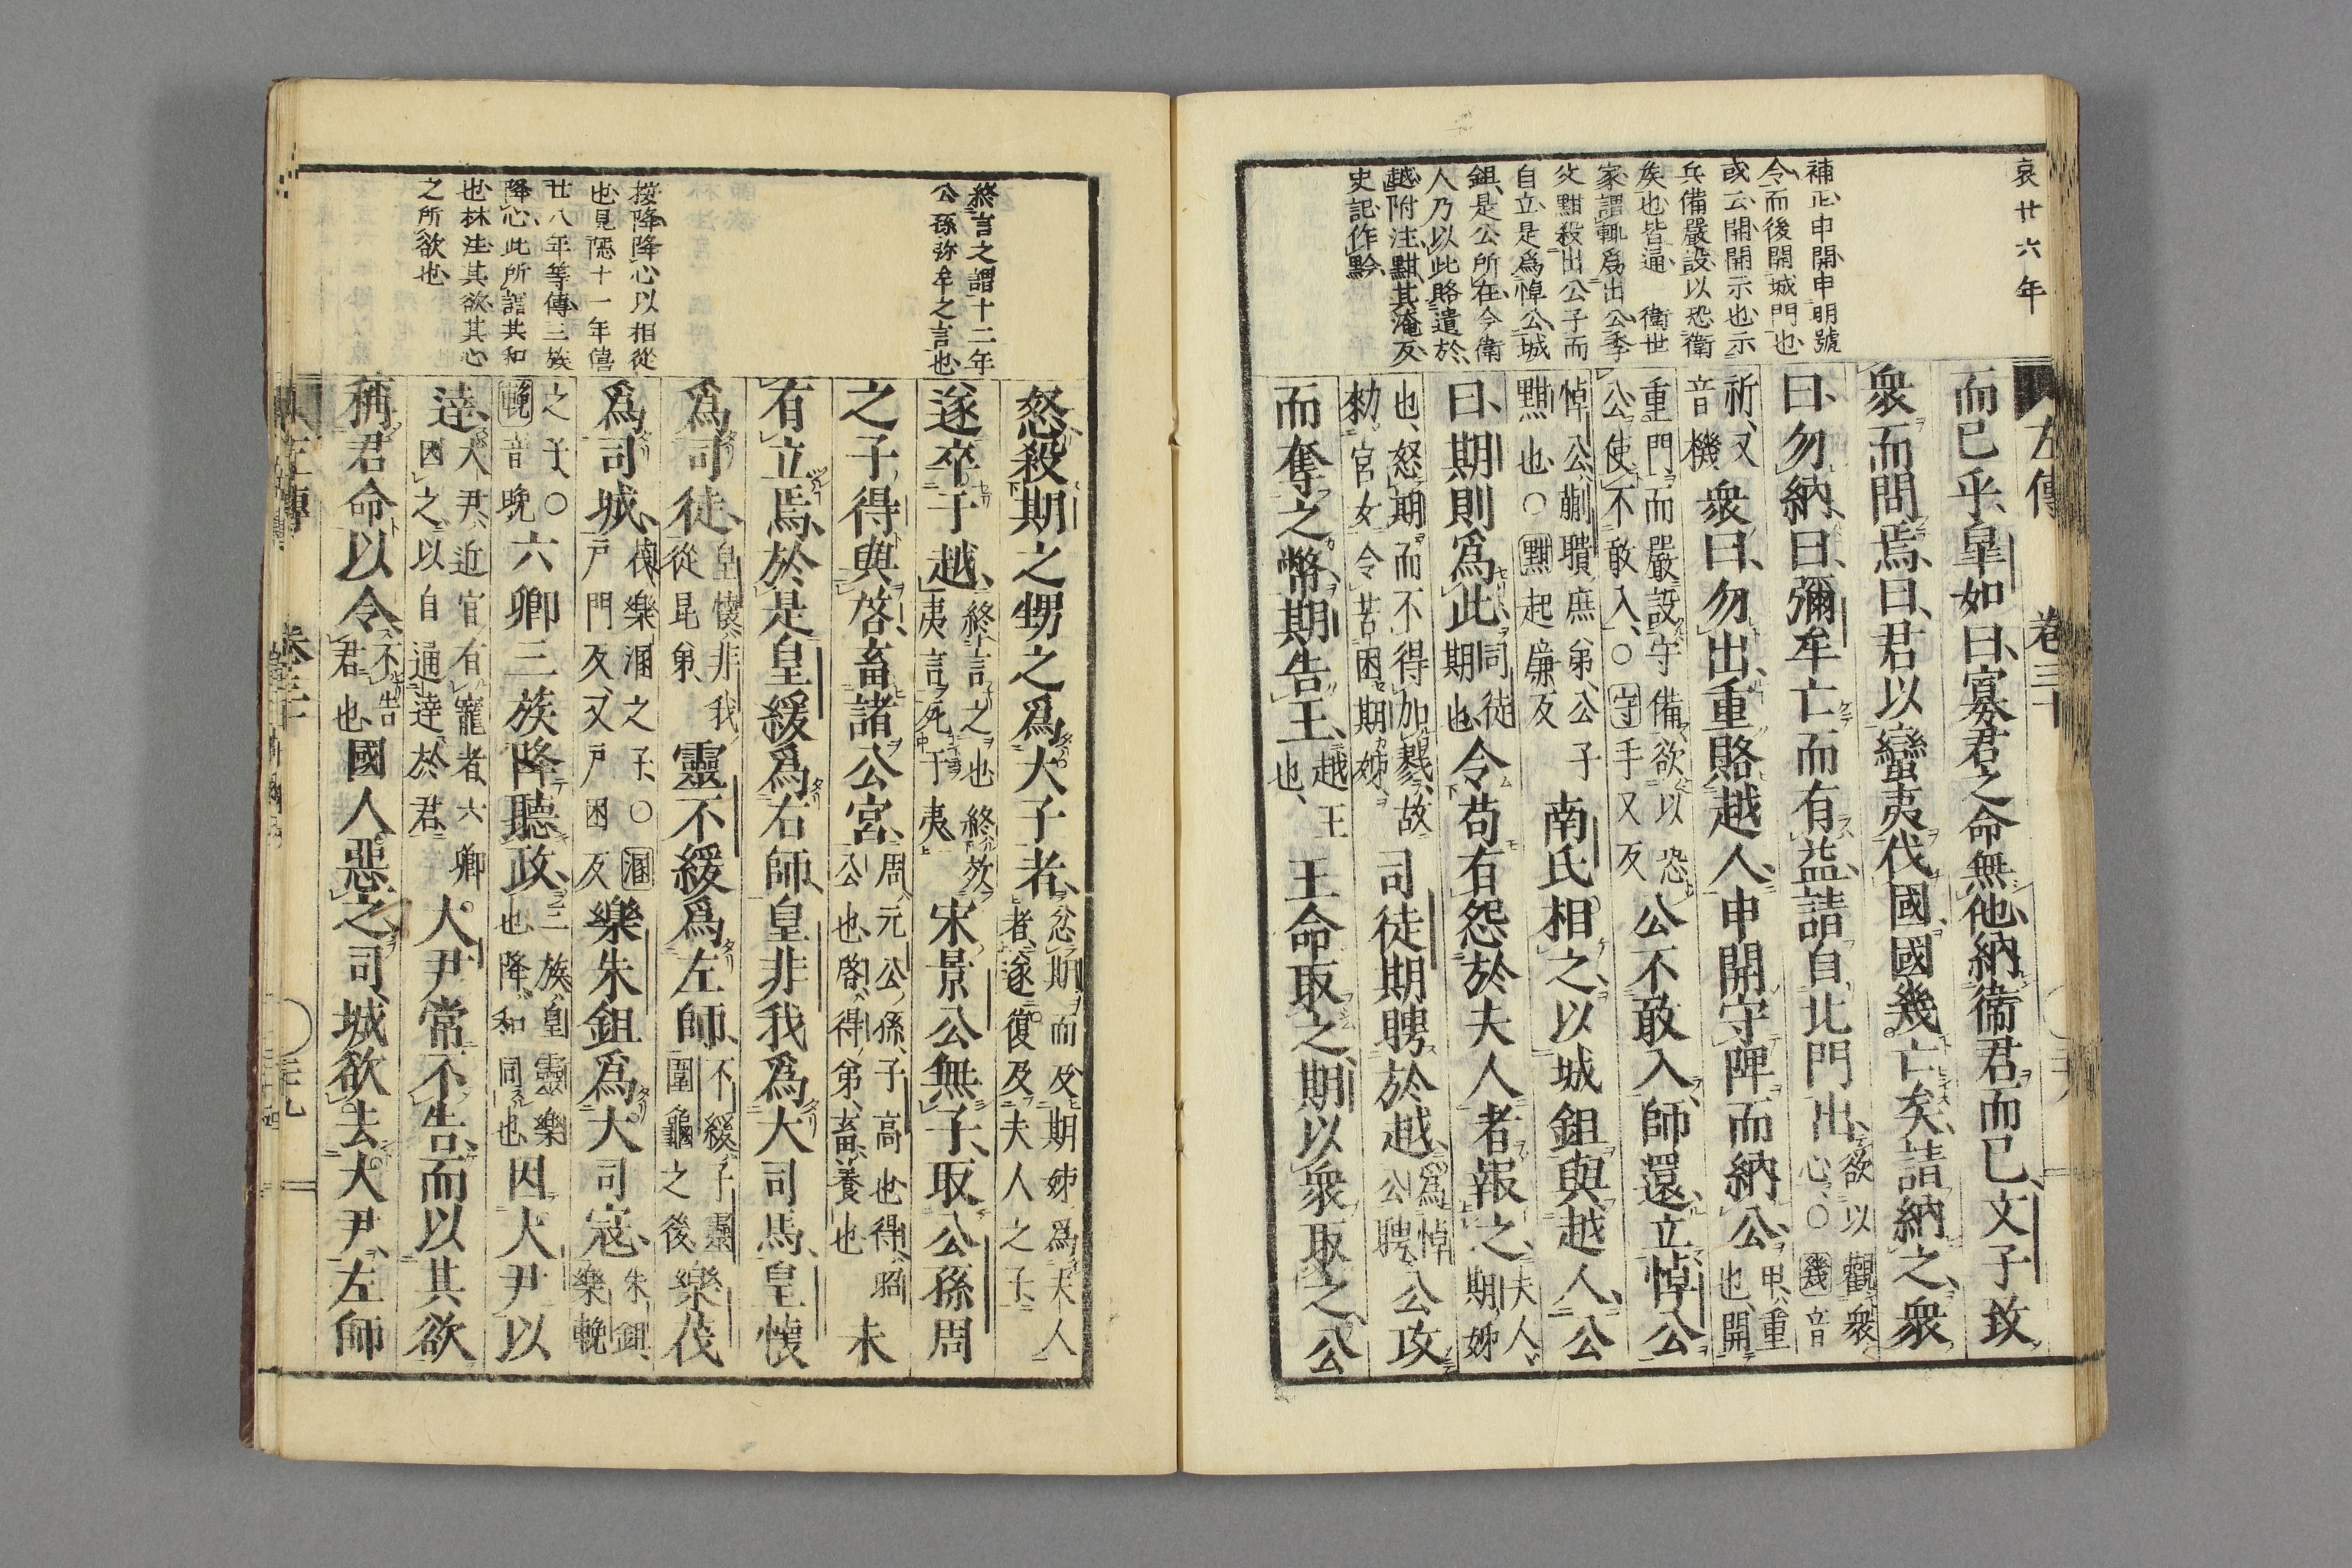 哀廿六年
補正申開申明號
令而後開城門也
或云開開示也示
兵備嚴設以恐衛
矣也皆通　衛世
家謂輒爲出公季
父黚殺出公子而
自立是爲悼公城
鉏是公所在今衛
人乃以此賂遺於
越附注黚其淹反
史記作黔
左傳　卷三十
而已乎皐如曰寡君之命無他納衞君而已文子致
衆而問焉曰君以蠻夷伐國國幾亡矣請納之衆
曰勿納曰彌牟亡而有益請自北門出欲以觀衆心○幾音
祈又音機衆曰勿出重賂越人申開守陴而納公申重也開
重門而嚴設守備欲以恐公使不敢入○守手又反公不敢入師還立悼公
悼公蒯聵庶弟公子黚也○黚起廉反南氏相之以城鉏與越人公
曰期則爲此司徒期也令苟有怨於夫人者報之夫人期姊
也怒期而不得加戮故勑宮女令苦困期姊司徒期聘於越爲悼公聘公攻
而奪之幣期告王越王也王命取之期以衆取之公
終言之謂十二年
公孫弥牟之言也
按降降心以相從
也見隱十一年僖
廿八年等傳三族
降心此所謂共和
也林注其欲其心
之所欲也
怒殺期之甥之爲大子者忿期而及期姊爲夫人者遂復及夫人之子
遂卒于越終言之也終效夷言死于夷宋景公無子取公孫周
之子得與啓畜諸公宮周元公孫子高也得昭公也啓得弟畜養也未
有立焉於是皇緩爲右師皇非我爲大司馬皇懷
爲司徒皇懷非我從昆弟靈不緩爲左師不緩子靈圍龜之後樂茷
爲司城茷樂溷之子○溷戸門反又戸困反樂朱鉏爲大司寇朱鉏樂輓
之子○輓音晚六卿三族降聽政三族皇靈樂也降和同也因大尹以
達大尹近官有寵者六卿因之以自通達於君大尹常不告而以其欲
稱君命以令不告君也國人惡之司城欲去大尹左師